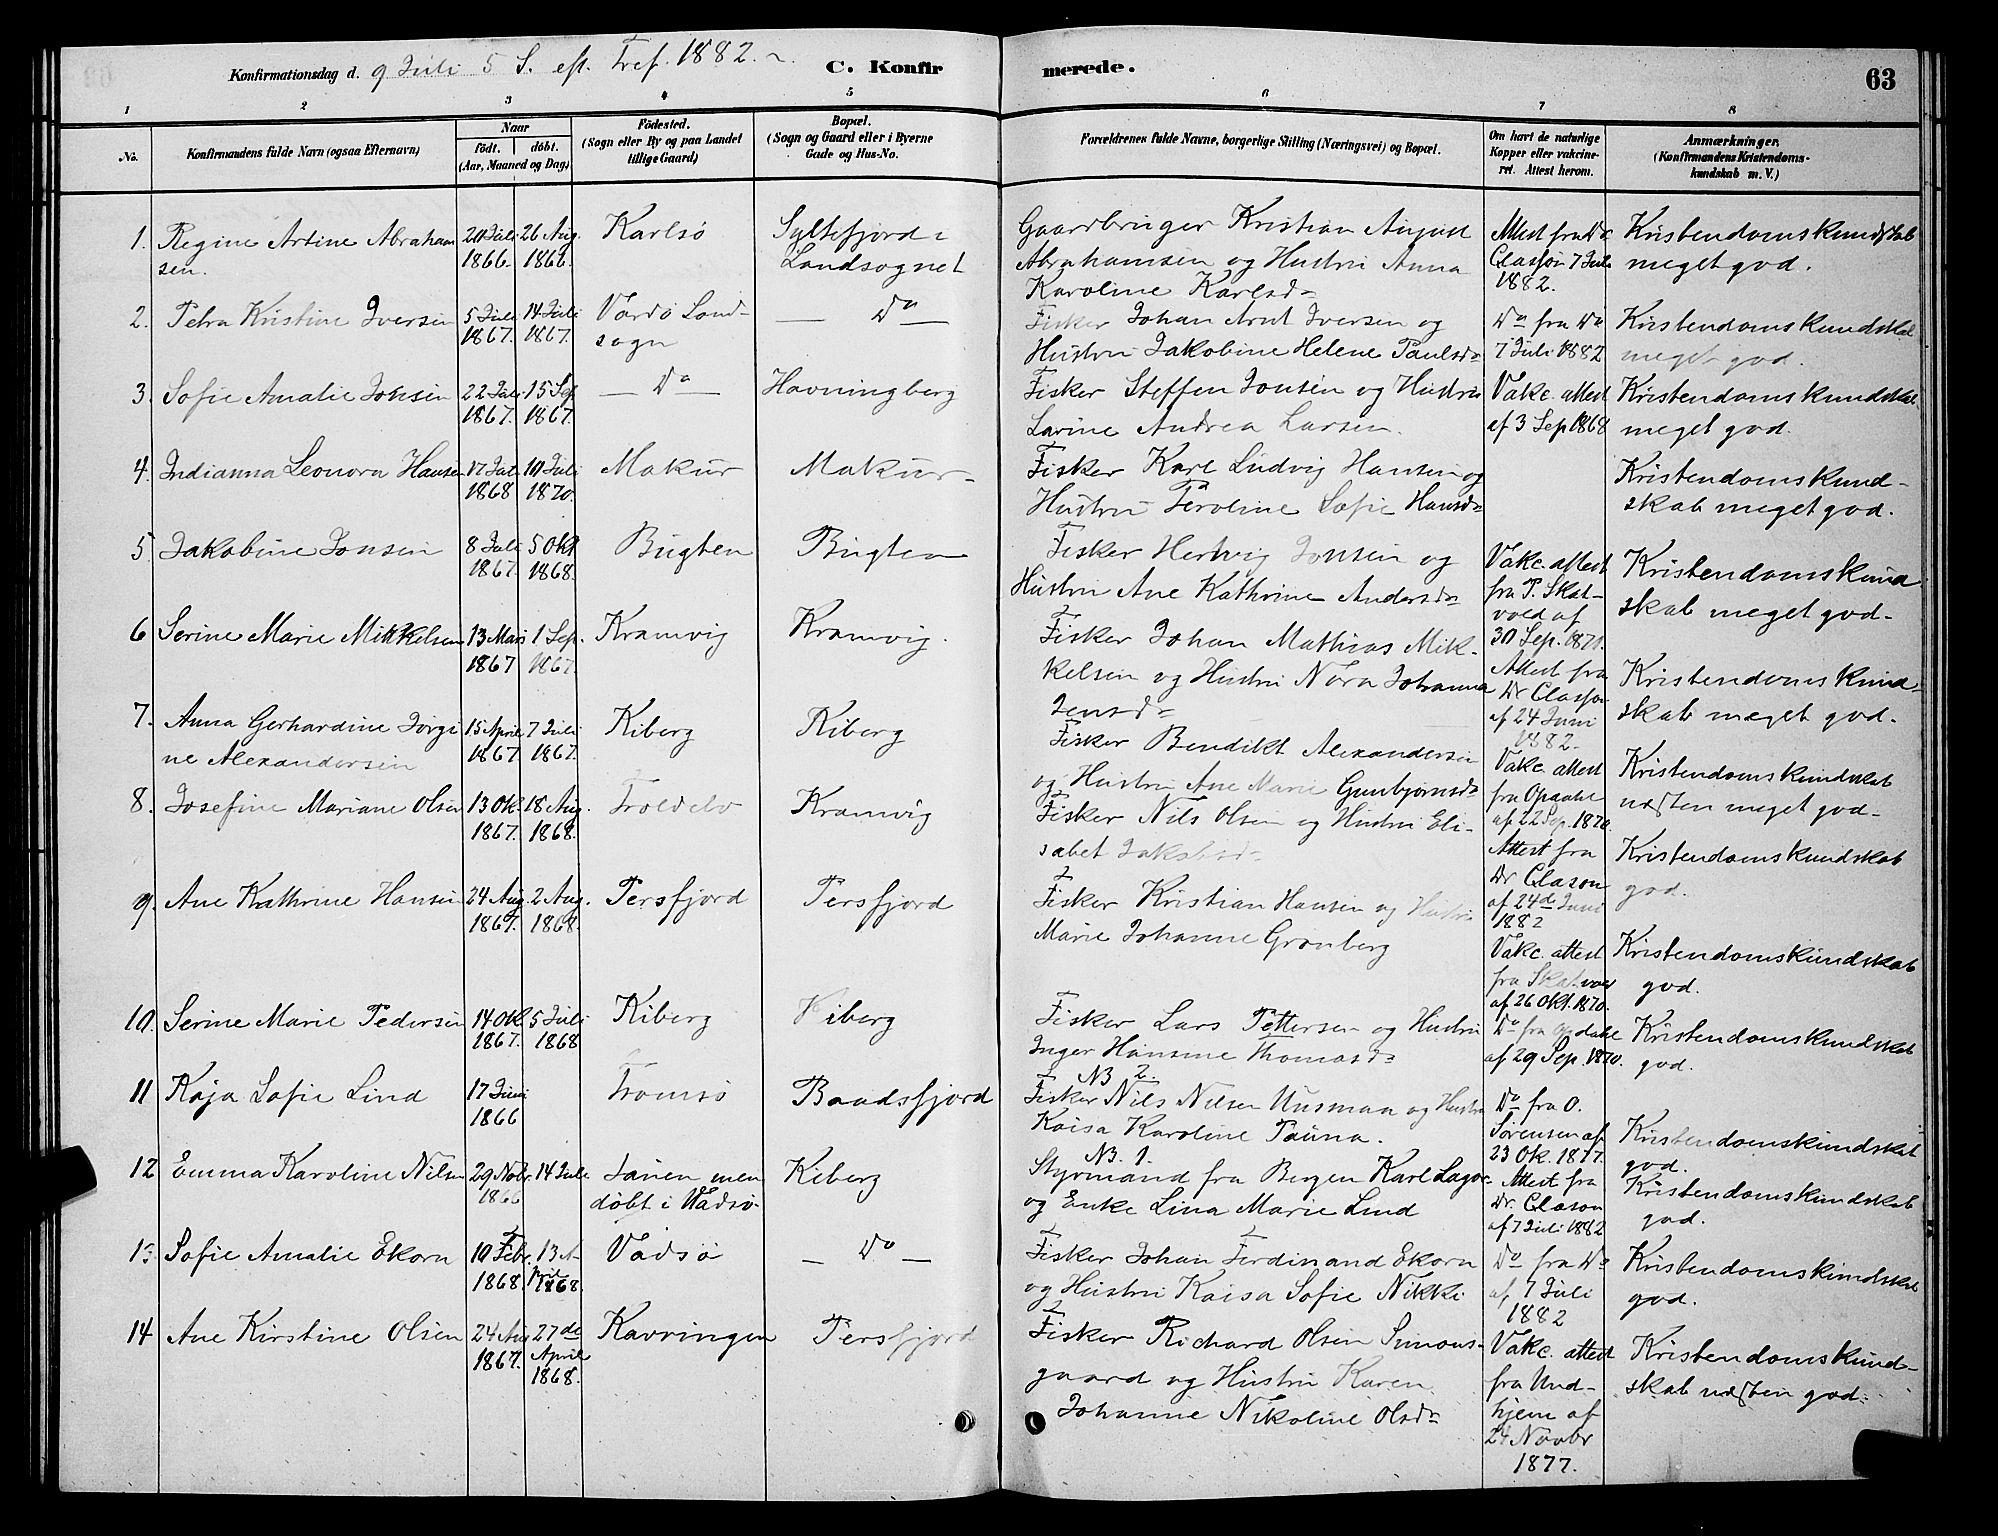 Konfirmationsdag d. 9 Juli 5 S. eft. Tref. 1882.
C. Konfirmerede.
63
1 2 3 4 5 6 7 8
No.
Konfirmandens fulde Navn (ogsaa Efternavn)
Naar
födt. döbt.
(Aar, Maaned og Dag)
Födested.
(Sogn eller By og paa Landet
tillige Gaard)
Bopæl.
(Sogn og Gaard eller i Byerne
Gade og Hus-No.
Forældrenes fulde Navne, borgerlige Stilling (Næringsvei) og Bopæl.
Om havt de naturlige
Kopper eller vakcine-
ret. Attest herom.
Anmærkninger.
(Konfirmandens Kristendoms-
kundskab m. V.)
1. Regine Artine Abraham
sen.
20 Juli
1866.
26 Aug.
1866.
Karlsö
Syltefjord i
Landsognet
Gaardbruger Kristian August
Abrahamsen og Hustru Anna
Karoline Karlsd.
Attest fra Dr
Classon 7 Juli
1882.
Kristendomskundskab
meget god.
2. Petra Kristine Iversen
5 Juli
1867.
14 Juli
1867.
Vardö Land-
sogn
— Do —
Fisker Johan Arnt Iversen og
Hustru Jakobine Helene Paulsd.
Do fra Do
7 Juli 1882
Kristendomskundskab
meget god.
3. Sofie Amalie Jonsen
22 Juli
1867.
15 Sep
1867.
— Do —
Havningberg
Fisker Steffen Jonsen og Hustru
Lavine Andrea Larsen.
Vakc. attest
af 3 Sep 1868
Kristendomskundskab
meget god.
4. Indianna Leonora Hansen
17 Juli
1868
10 Juli
1870.
Makur
Makur
Fisker Karl Ludvig Hansen og
Hustru Peroline Sofie Hansd.
Kristendomskund-
skab meget god.
5 Jakobine Jonsen
8 Juli
1867.
5 Okt
1868.
Bugten
Bugten
Fisker Hertvig Jonsen og
Hustru Ane Kathrine Andersd.
Vakc. attest
fra P. Skat-
vold af
30 Sep. 1871.
Kristendomskund
skab meget god.
6 Serine Marie Mikkelsen
13 Mars
1867
1 Sep.
1867.
Kramvig
Kramvig.
Fisker Johan Mathias Mik-
kelsen og Hustru Nora Johanna
Jensd.
Attest fra
Dr Classon
af 24 Juni
1882.
Kristendomskund-
skab meget god.
7. Anna Gerhardine Jörgi
ne Alexandersen
15 April
1867
7 Juli
1867.
Kiberg
Kiberg
Fisker Bendikt Alexandersen
og Hustru Ane Marie Gunbjörnsd.
Vakc. attest
fra Opdahl
af 22 Sep. 1870.
Kristendomskundskab
næsten meget god.
8. Josefine Mariane Olsen
13 Ok.
1867.
18 Aug.
1868.
Troldelv
Kramvig
Fisker Nils Olsen og Hustru Eli-
sabet Jakobsd.
Attest fra
Dr Clason
af 24de Juni
1882
Kristendomskundskab
god.
9. Ane Kathrine Hansen
24 Aug.
1867.
2 Aug.
1868.
Persfjord
Persfjord
Fisker Kristian Hansen og Hustru
Marie Johanne Grönberg
Vakc. attest
fra Skatvold
af 26 Okt. 1870.
Kristendomskundskab
god.
10. Serine Marie Pedersen
14 Ok.
1867.
5 Juli
1868
Kiberg
Kiberg
Fisker Lars Pettersen og Hustru
Inger Hansine Thomasd.
Do fra Opdahl
af 29 Sep. 1870.
Kristendomskundskab
god.
11 Kaja Sofie Lind
17 Juni
1866
Tromsö
Baadsfjord
NB 2.
Fisker Nils Nilsen Uusmaa og Hustru
Kaisa Karoline Pauna.
Do fra O.
Sörensen af
23 Ok. 1877.
Kristendomskundskab
god.
12 Emma Karoline Nilsen
29 Nobr.
1866
14 Juli
Tanen men
döbt i Vadsö
Kiberg
NB. 1.
Styrmand fra Bergen Karl Lagor
og Enke Lina Marie Lind
Attest fra
Dr. Clason
af 7 Juli 1882
Kristendomskundskab
god.
13 Sofie Amalie Ekorn
10 Febr.
1868.
13 A-
pril
1868.
Vadsö
— Do —
Fisker Johan Ferdinand Ekorn
og Hustru Kaisa Sofie Nikki
Do fra Do
af 7 Juli
1882
Kristendomskundskab
god.
14 Ane Kirstine Olsen
24 Aug
1867.
27de
April
1868.
Kavringen
Persfjord
Fisker Richard Olsen Simons-
gaard og Hustru Karen
Johanne Nikoline Olsd.
Vakc. attest
fra Und-
hjem af
24 Novbr
1877.
Kristendomskund-
skab næsten god.